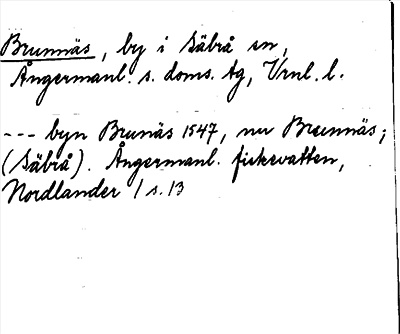 Brunnäs, by i Säbrå sn,
Ångermanl. s. doms. tg, Vrnl. l.
--- byn Brunäs 1547, nu Brunnäs;
(Säbrå). Ångermanl. fiskevatten,
Nordlander I s. 13